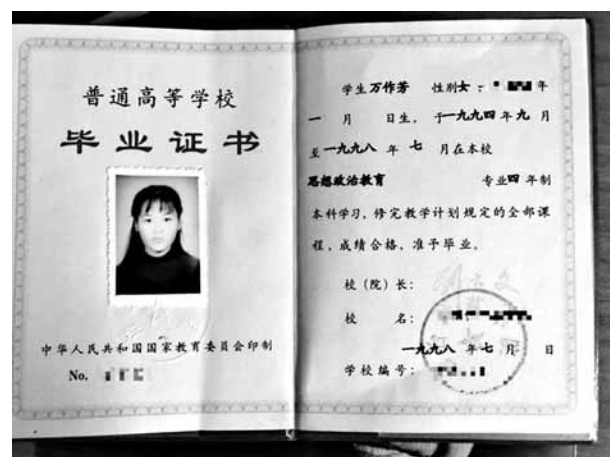 普通高等学校
毕业证书
中华人民共和国国家教育委员会印制
No.
学生万作芳 性别女, 年
一 月 日生, 于一九九四年九 月
至一九九八 年 七 月在本校
思想政治教育 专业四 年制
本科学习, 修完教学计划规定的全部课
程, 成绩合格, 准予毕业。
校(院)长:
校 名:
一九九八 年七 月 日
学校编号: